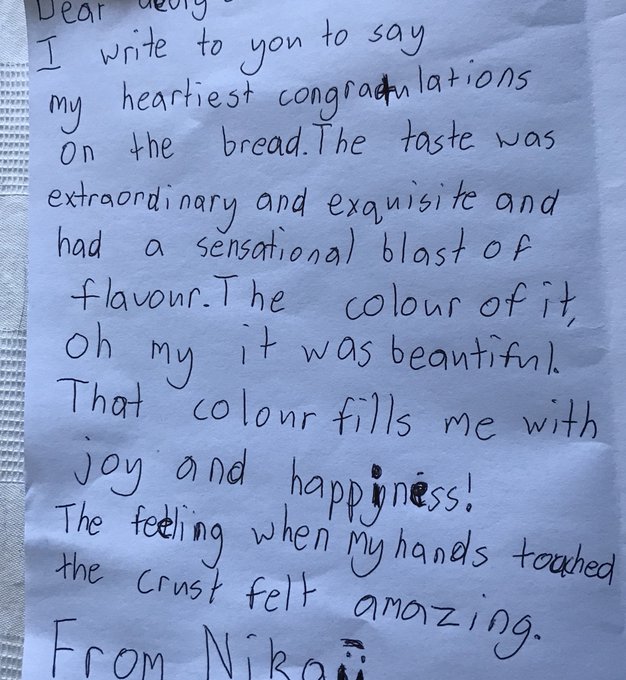 Dear
I write to you to say
my heartiest congratulations
on the bread. The taste was
extraordinary and exquisite and
had a sensational blast of
flavour. The colour of it,
oh my it was beautiful.
That colour fills me with
joy and happiness!
The feeling when my hands touched
the crust felt amazing.
From Nika